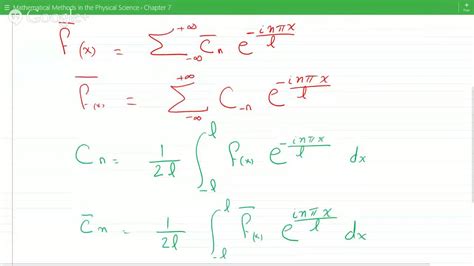 Mathematical Methods in the Physical Science - Chapter 7
f̅(x) = ∑_{-∞}^{+∞} c̅_n e^{-inπx/l}
f̅(x) = ∑_{-∞}^{+∞} C_{-n} e^{-inπx/l}
C_n = 1/2l ∫_{-l}^{l} f(x) e^{-inπx/l} dx
c̅_n = 1/2l ∫_{-l}^{l} f̅(x) e^{inπx/l} dx